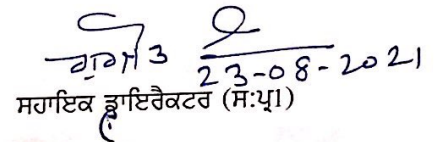 ਗੁਰਜੀਤ
23-08-2021
ਸਹਾਇਕ ਡਾਇਰੈਕਟਰ (ਸ:ਪ੍ਰ1)